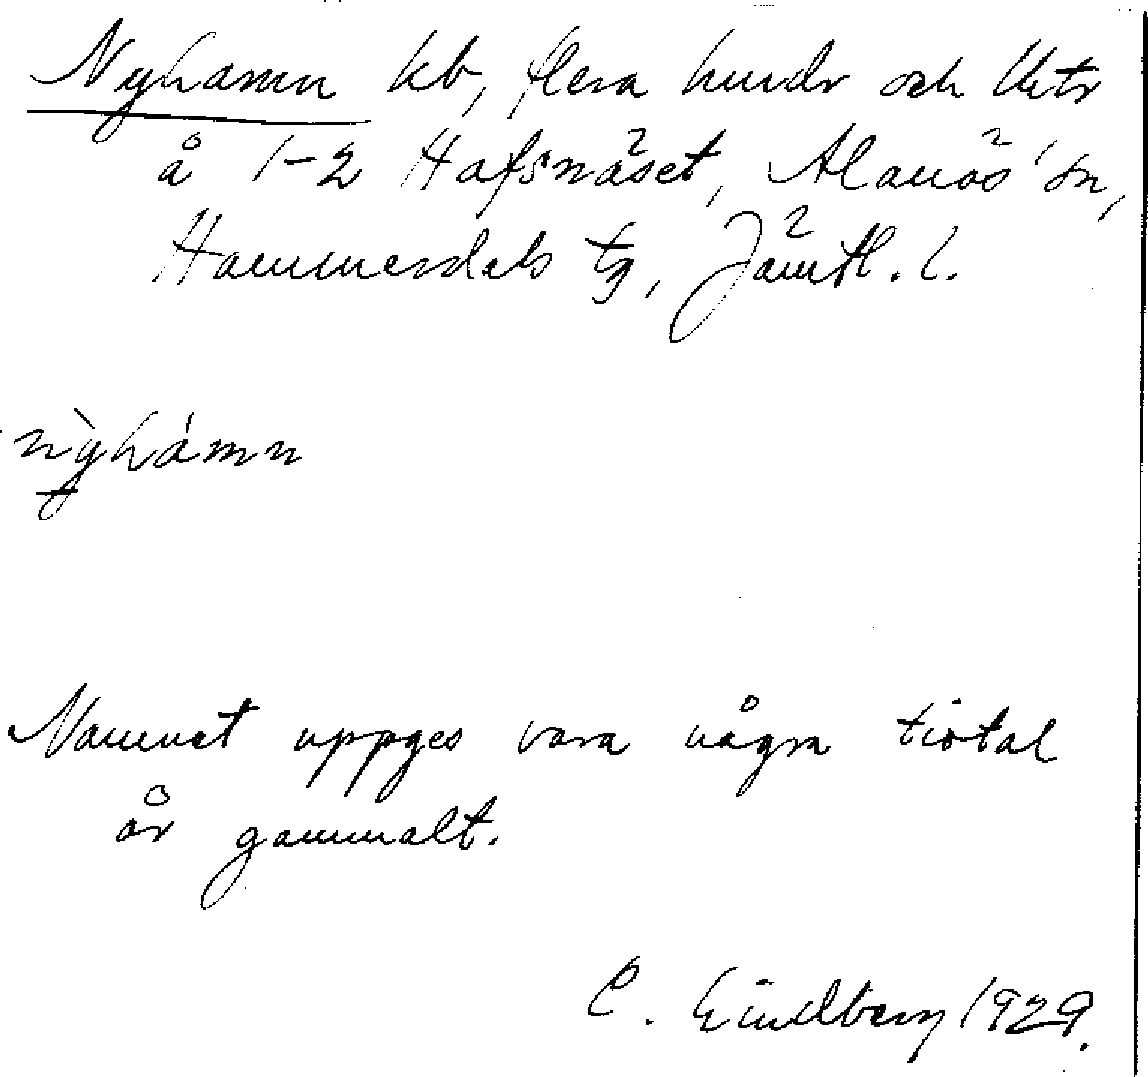 Nyhamn kb, flera hundr och lktr
å 1-2 Hafsnäset, Alanäs' sn,
Hammerdals tg, Jämtl. l.
nỳhámn
Namnet uppges vara några tiotal
år gammalt.
C. Lindberg 1929.